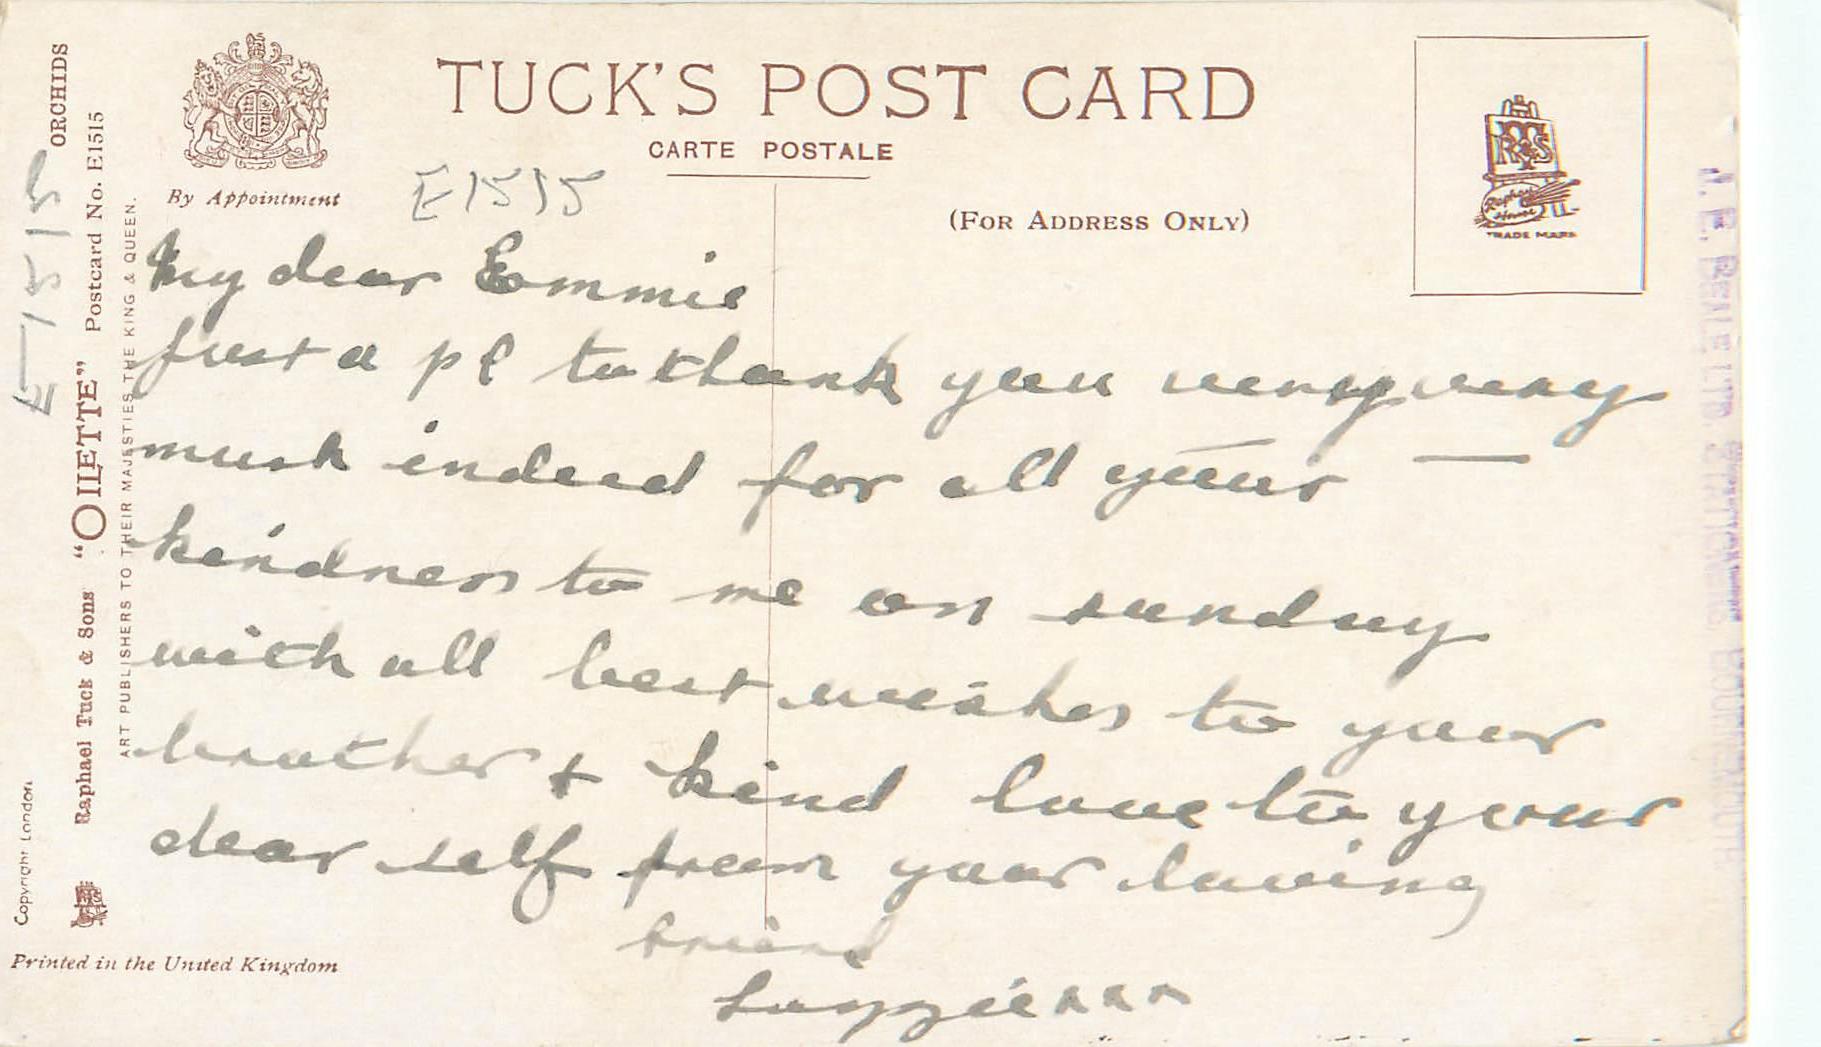 TUCK'S POST CARD
CARTE POSTALE
(FOR ADDRESS ONLY)
By Appointment
E1515
TRADE MARK
ORCHIDS
Postcard No. E1515
E1515
Raphael Tuck & Sons "OILETTE"
ART PUBLISHERS TO THEIR MAJESTIES THE KING & QUEEN.
Copyright London
Printed in the United Kingdom
My dear Emmie
Just a pc to thank you very very
much indeed for all your
kindness to me on sunday
with all best wishes to your
brother & kind love to your
dear self from your loving
friend
xxx
J. E. BEALE LTD. STATIONERS, BOURNEMOUTH